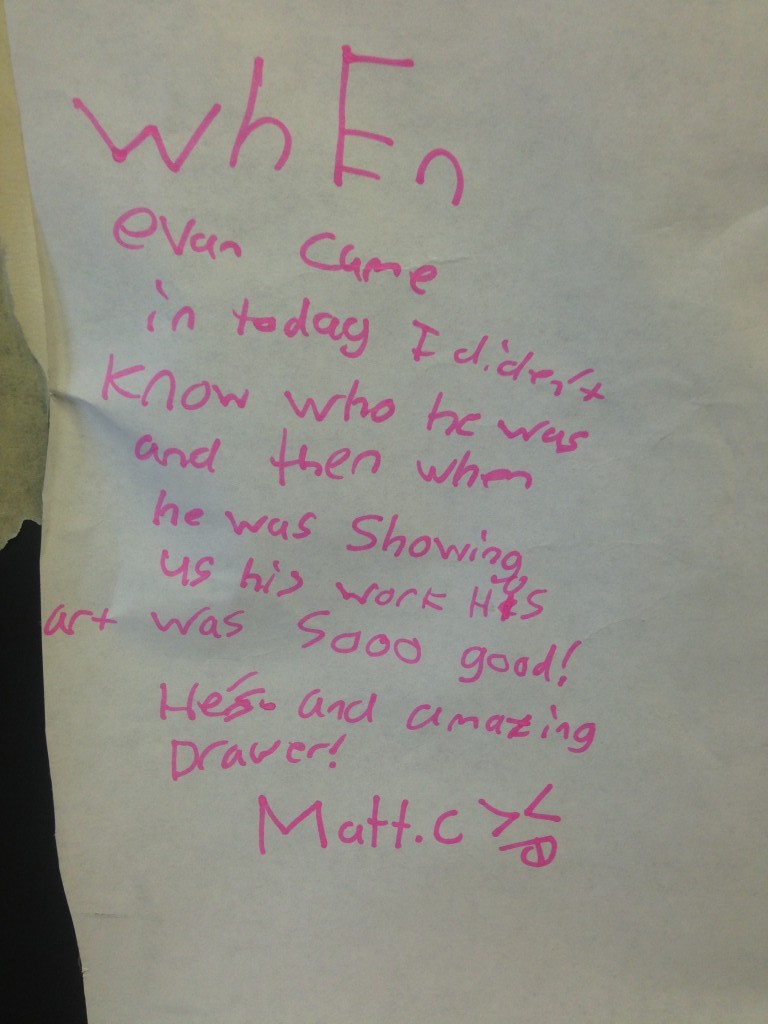 whEn
evan came
in today I diden't
Know who he was
and then when
he was Showing
us his work His
art was Sooo good!
He's and amazing
Drawer!
Matt.C